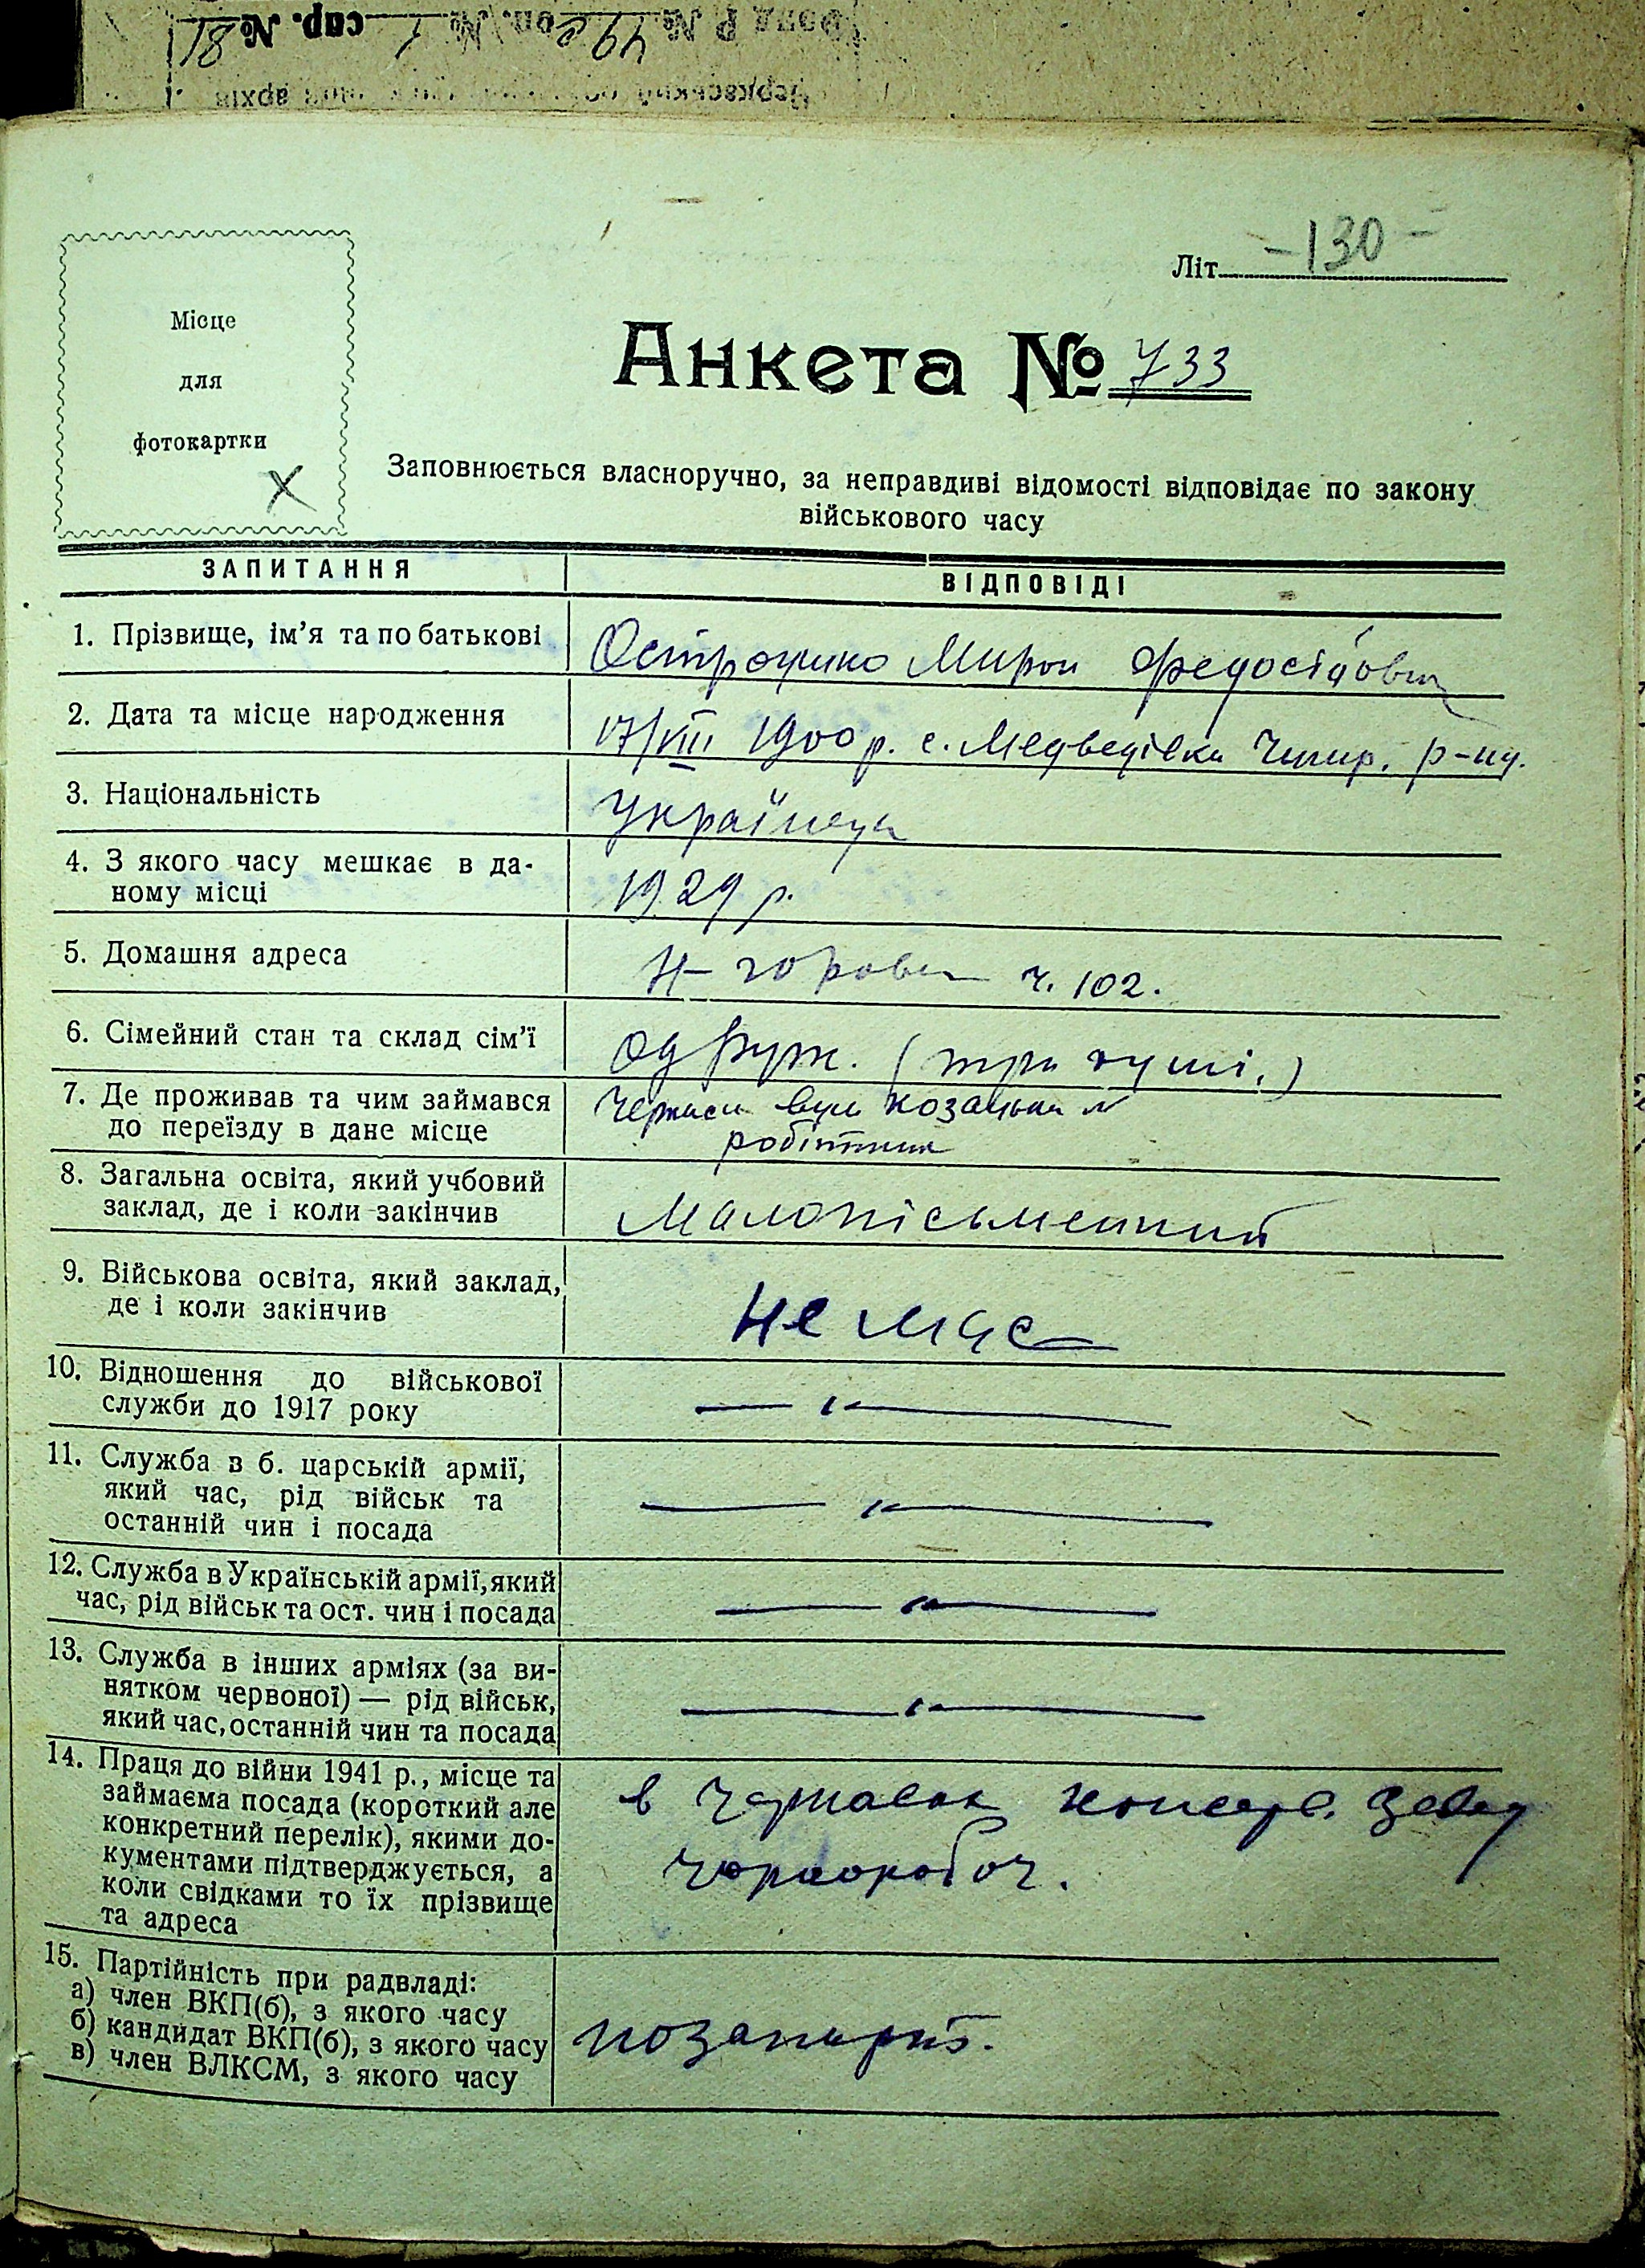 Фонд Р № 49 оп. № 1 спр. № 81
архів
Літ. -130-
Місце
для
фотокартки
Анкета № 733
Заповнюється власноручно, за неправдиві відомості відповідає по закону
військового часу
ЗАПИТАННЯ ВІДПОВІДІ
1. Прізвище, ім'я та по батькові Мирон
2. Дата та місце народження 17/VIII 1900 р. с. Медведівка Чигир. р-ну.
3. Національність Українець
4. З якого часу мешкає в да-
ному місці 1929 р.
5. Домашня адреса ч. 102.
6. Сімейний стан та склад сім'ї Одруж. (три душі.)
7. Де проживав та чим займався Черкаси вул Козацька
до переїзду в дане місце робітник
8. Загальна освіта, який учбовий
заклад, де і коли закінчив Малопісьменний
9. Військова освіта, який заклад,
де і коли закінчив не має
10. Відношення до військової
служби до 1917 року — " —
11. Служба в б. царській армії,
який час, рід військ та
останній чин і посада — " —
12. Служба в Українській армії, який
час, рід військ та ост. чин і посада — " —
13. Служба в інших арміях (за ви-
нятком червоної) — рід військ,
який час, останній чин та посада — " —
14. Праця до війни 1941 р., місце та
займаєма посада (короткий але в консерв. завод
конкретний перелік), якими до-
кументами підтверджується, а чорнороб.
коли свідками то їх прізвище
та адреса
15. Партійність при радвладі:
а) член ВКП(б), з якого часу
б) кандидат ВКП(б), з якого часу позапарт.
в) член ВЛКСМ, з якого часу